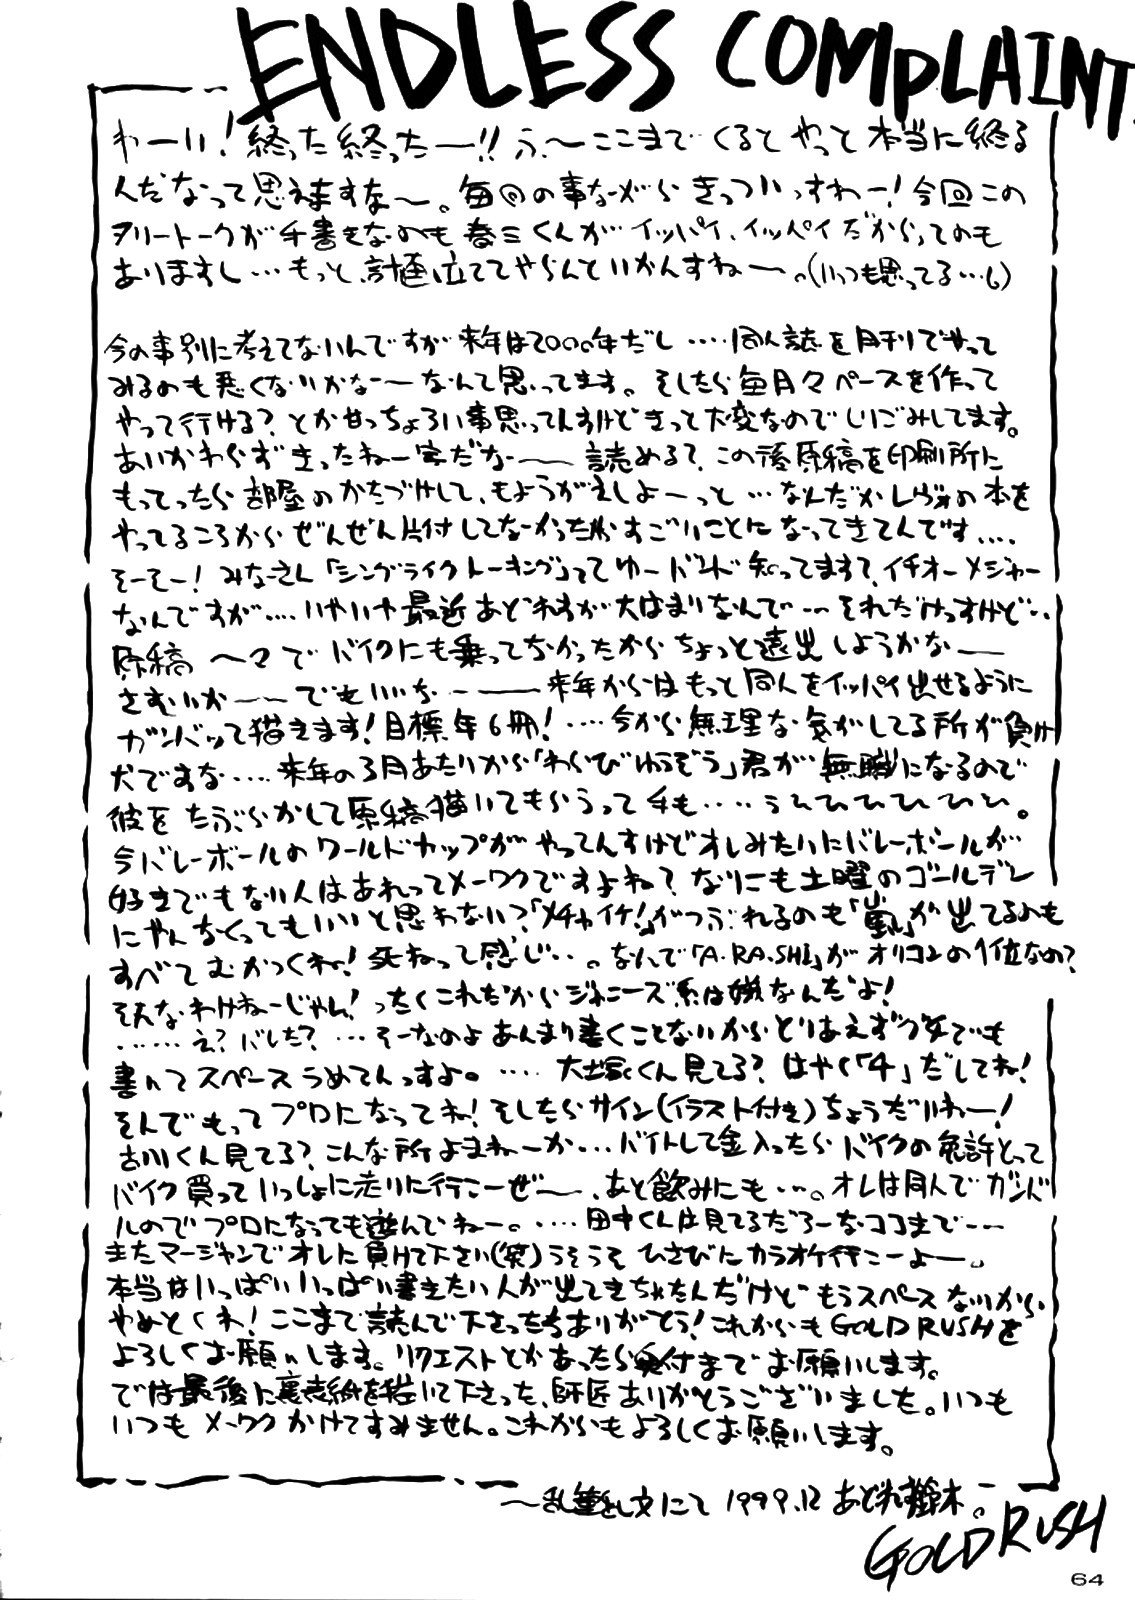 ENDLESS COMPLAINT.
わーい!終った終ったー!!ふ〜ここまでくるとやっと本当に終る
んだなって思えますな〜。毎回の事ながらきっついっすわー!今回この
フリートークが手書きなのも春三くんがイッパイ、イッパイだからってのも
ありますし…もっと、計画立ててやらんといかんすねー。(いつも思ってる…も)
今の事別に考えてないんですが来年は2000年だし‥‥同人誌を月刊でやって
みるのも悪くないかなーなんて思ってます。そしたら毎月々ペースを作って
やって行ける?とか甘っちょろい事思ってんすけどきっと大変なのでしりごみしてます。
あいかわらずきったねー字だなー読める?この後原稿を印刷所に
もってったら部屋のかたづけして、もようがえしよーっと…なんだかレヴォの本を
やってるころからぜんぜん片付してなかったからすごいことになってきてんです‥‥
そーそー!みなさん「シングライクトーキング」ってゆーバンド知ってます?イチオーメジャー
なんですが‥‥いやいや最近あどれすが大はまりなんで…それだけっすけど‥
原稿〜々でバイクにも乗ってなかったからちょっと遠出しようかなー
さむいかー〜でもいいなー来年からはもっと同人をイッパイ出せるように
ガンバって描きます!目標年6冊!‥‥今から無理な気がしてる所が負け
犬ですな‥‥来年の3月あたりから「わらびゆうぞう」君が無職になるので
彼をたぶらかして原稿描いてもらうって手も‥‥うひひひひひひ。
今バレーボールのワールドカップがやってんすけどオレみたいにバレーボールが
好きでもない人はあれってメーワクですよね?なりにも土曜のゴールデン
にやんなくってもいいと思わない?「メチャイケ!」がつぶれるのも「嵐」が出てるのも
すべてむかつくね!死ねって感じ‥。なんで「A・RA・SHI」がオリコンの1位なの?
そんなわけねーじゃん!ったくこれだからジャニーズ系は嫌なんだよ!
‥‥‥え?バレた?…そーなのよあんまり書くことないからとりあえずウダでも
書いてスペースうめてんっすよ。‥‥大塚くん見てる?はやく「4」だしてね!
そんでもってプロになってね!そしたらサイン(イラスト付き)ちょうだいねー!
古川くん見てる?こんな所よまねーか…バイトして金入ったらバイクの免許とって
バイク買っていっしょに走りに行こーぜー、あと飲みにも…。オレは同人でガンバ
ルのでプロになっても遊んでねー。‥‥田中くんは見てるだろーなココまで…
またマージャンでオレに負けて下さい(笑)うそうそひさびにカラオケ行こーよー。
本当はいっぱいいっぱい書きたい人が出てきちゃたんだけどもうスペースないから
やめとくわ!ここまで読んで下さったちありがとう!これからもGOLD RUSHを
よろしくお願いします。リクエストとかあったら奥付までお願いします。
では最後に裏表紙を描いて下さった、師匠ありがとうございました。いつも
いつもメーワクかけてすみません。これからもよろしくお願いします。
〜乱筆乱文にて 1999.12 あどれす鈴木。
GOLD RUSH
64